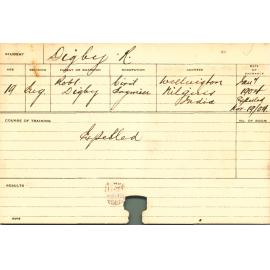 STUDENT Digby R.
AGE RELIGION PARENT OR GUARDIAN OCCUPATION ADDRESS DATE OF ENTRANCE
19 Ang. Robt Digby Civil Engineer Wellington Nilgiris India Jan 9 1904 Expelled Nov 18/04
COURSE OF TRAINING NO. OF ROOM
Expelled
RESULTS
DATE